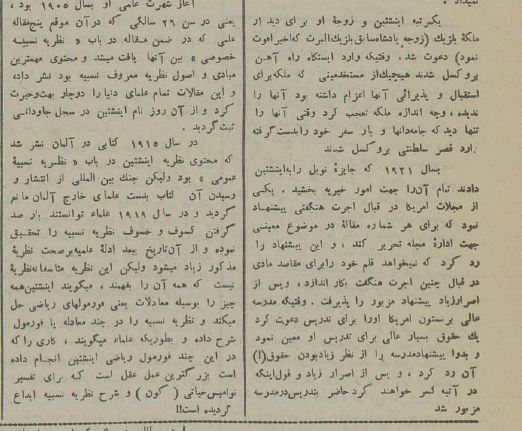 نمیداد .
یکمرتبه اینشتین و زوجهٔ او برای دیدار
ملکهٔ بلژیک (زوجه پادشاه سابق بلژیک البرت که اخیرا فوت
نمود) دعوت شد. وقتیکه وارد ایستگاه راه آهن
بروکسل شدند هیچیک از مستخدمینی که ملکه برای
استقبال و پذیرائی آنها اعزام داشته بود آنها را
ندیده، وچه اندازه ملکه تعجب کرد وقتی آنها را
تنها دید که جامه‌دانها و بار سفر خود را بدست گرفته
وارد قصر سلطنتی بروکسل شدند
بسال ۱۹۲۱ که جایزهٔ نوبل را به اینشتین
دادند تمام آن را جهت امور خیریه بخشید . یکی
از مجلات امریکا در قبال اجرت هنگفتی پیشنهاد
نمود که برای هر شماره مقالهٔ در موضوع معینی
جهت ادارهٔ مجله تحریر کند ، و این پیشنهاد را
رد کرد که نمیخواهد قلم خود را برای مقاصد مادی
در قبال چنین اجرت هنگفت بکار اندازد ، و پس از
اصرار زیاد پیشنهاد مزبور را پذیرفت . وقتیکه مدرسه
عالی برنستون امریکا اورا برای تدریس دعوت کرد
یک حقوق بسیار عالی برای تدریس او معین نمود
و بدوا پیشنهاد مدرسه را از نظر زیاد بودن حقوق(!)
آن رد کرد ، و پس از اصرار زیاد و قول اینکه
در آتیه کسر خواهند کرد حاضر بتدریس در مدرسه
مزبور شد
آغاز شهرت علمی او بسال ۱۹۰۵ بود ،
یعنی در سن ۲۶ سالگی که در آن موقع پنج مقاله
علمی که در ضمن مقاله در باب « نظریه نسبیه
خصوصی » بین آنها یافت میشد و محتوی مهمترین
مبادی و اصول نظریه معروف نسبیه بود نشر داد،
و این مقالات تمام علمای دنیا را دوچار بهت و حیرت
کرد و از آن روز نام اینشتین در سجل جاودانی
ثبت گردید .
در سال ۱۹۱۵ کتابی در آلمان نشر شد
که محتوی نظریه اینشتین در باب « نظریه نسبیهٔ
عمومی » بود ولیکن جنك بین المللی از انتشار و
رسیدن آن کتاب بدست علمای خارج آلمان مانع
گردید و در سال ۱۹۱۹ علماء توانستند بار صد
گرفتن کسوف و خسوف نظریه نسبیه را تحقیق
نموده و از آن تاریخ ببعد ادلهٔ علمیه بر صحت نظریهٔ
مذکور زیاد میشود ولیکن این نظریه متاسفانه نظریهٔ
نیست که همه آن را بفهمند ، میگویند اینشتین همه
چیز را بوسیله معادلات یعنی فورمولهای ریاضی حل
میکند و نظریه نسبیه را در چند معادله یا فورمول
شرح داده و بطوریکه علماء میگویند ، کاری را که
در این چند فورمول ریاضی اینشتین انجام داده
است بزرگترین عمل عقل است که برای تفسیر
نوامیس حیاتی ( کون ) و شرح نظریه نسبیه ابداع
گردیده است!!